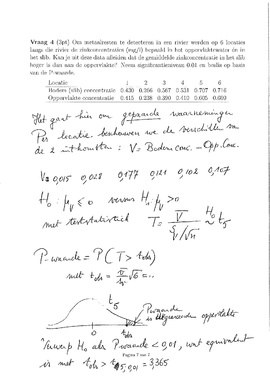 Vraag 4 (2pt) Om metaalresten te detecteren in een rivier werden op 6 locaties
langs die rivier de zinkconcentraties (mg/l) bepaald in het oppervlaktewater én in
het slib. Kan je uit deze data afleiden dat de gemiddelde zinkconcentratie in het slib
hoger is dan aan de oppervlakte? Neem significantieniveau 0.01 en beslis op basis
van de P-waarde.
Locatie 1 2 3 4 5 6
Bodem (slib) concentratie 0.430 0.266 0.567 0.531 0.707 0.716
Oppervlakte concentratie 0.415 0.238 0.390 0.410 0.605 0.609
Het gaat hier om gepaarde waarnemingen
Per locatie beschouwen we de verschillen van
de 2 uitkomsten : V = Bodem conc. - Opp. Conc.
V: 0,015 0,028 0,177 0,121 0,102 0,107
H₀ : μᵥ ≤ 0 versus H₁ : μᵥ > 0
met teststatistiek T = V̄ / (Sᵥ/√n) ~H₀ t₅
P-waarde = P(T > t_obs)
met t_obs = v̄/sᵥ √6 = ...
t₅
P-waarde
is oppervlakte
t_obs
Verwerp H₀ als P-waarde < 0,01, wat equivalent
Pagina 7 van 7
is met t_obs > t₅,0,01 = 3,365